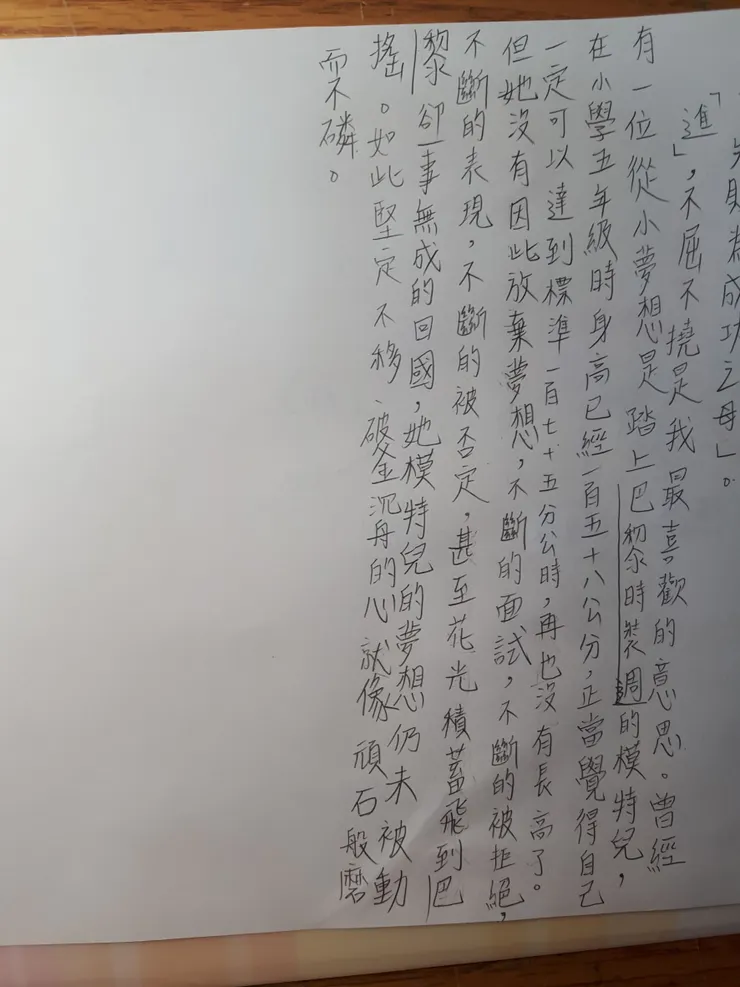 失敗為成功之母」。
進」，不屈不撓是我最喜歡的意思。曾經
有一位從小夢想是踏上巴黎時裝週的模特兒，
在小學五年級時身高已經一百五十八公分，正當覺得自己
一定可以達到標準一百七十五分公時，再也沒有長高了。
但她沒有因此放棄夢想，不斷的面試，不斷的被拒絕，
不斷的表現，不斷的被否定，甚至花光積蓄飛到巴
黎卻一事無成的回國，她模特兒的夢想仍未被動
搖。如此堅定不移、破釜沉舟的心就像頑石般磨
而不磷。